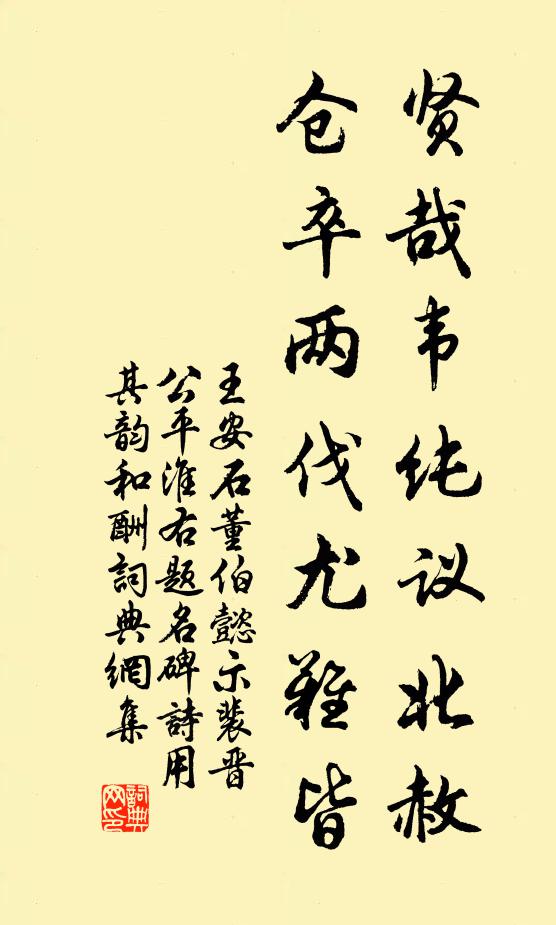 贤哉韦纯议北赦
仓卒两伐尤难皆
王安石董伯懿示裴晋
公平淮右题名碑詩用
其韵和酬詞典網集
詞典网印